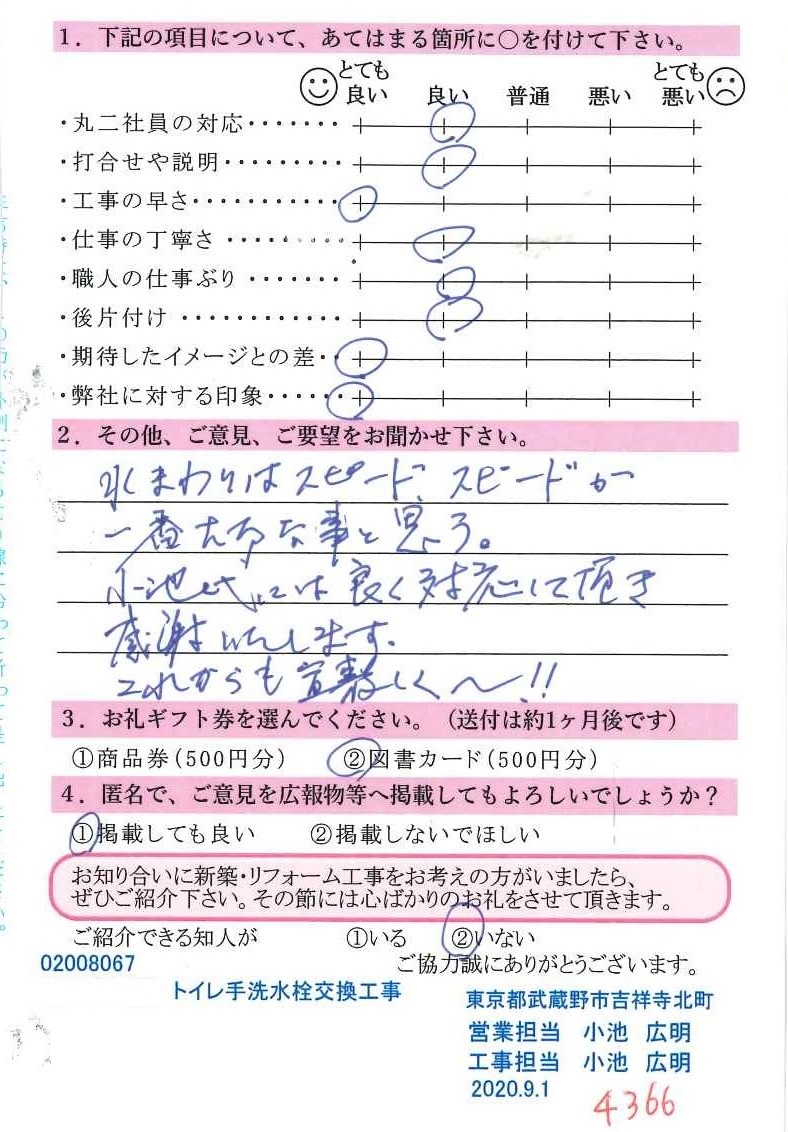 1. 下記の項目について、あてはまる箇所に○を付けて下さい。
とても良い 良い 普通 悪い とても悪い
・丸二社員の対応・・・・・・・
・打合せや説明・・・・・・・・・
・工事の早さ・・・・・・・・・・・
・仕事の丁寧さ・・・・・・・・・
・職人の仕事ぶり・・・・・・・
・後片付け・・・・・・・・・・・・
・期待したイメージとの差・・
・弊社に対する印象・・・・・・
2. その他、ご意見、ご要望をお聞かせ下さい。
水まわりはスピード、スピードが
一番大切な事と思う。
小池氏には良く対応して頂き
感謝いたします。
これからも宜敷しく〜!!
3. お礼ギフト券を選んでください。（送付は約1ヶ月後です）
①商品券(500円分) ②図書カード(500円分)
4. 匿名で、ご意見を広報物等へ掲載してもよろしいでしょうか?
①掲載しても良い ②掲載しないでほしい
お知り合いに新築・リフォーム工事をお考えの方がいましたら、
ぜひご紹介下さい。その節には心ばかりのお礼をさせて頂きます。
ご紹介できる知人が ①いる ②いない
02008067 ご協力誠にありがとうございます。
トイレ手洗水栓交換工事
東京都武蔵野市吉祥寺北町
営業担当 小池 広明
工事担当 小池 広明
2020.9.1
4366